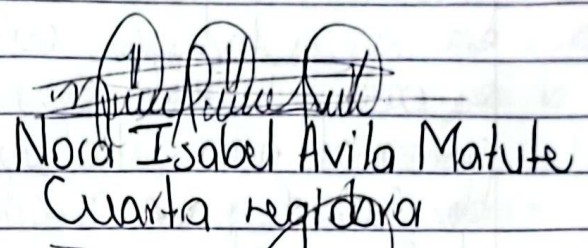 Nora Isabel Avila Matute
Cuarta regidora